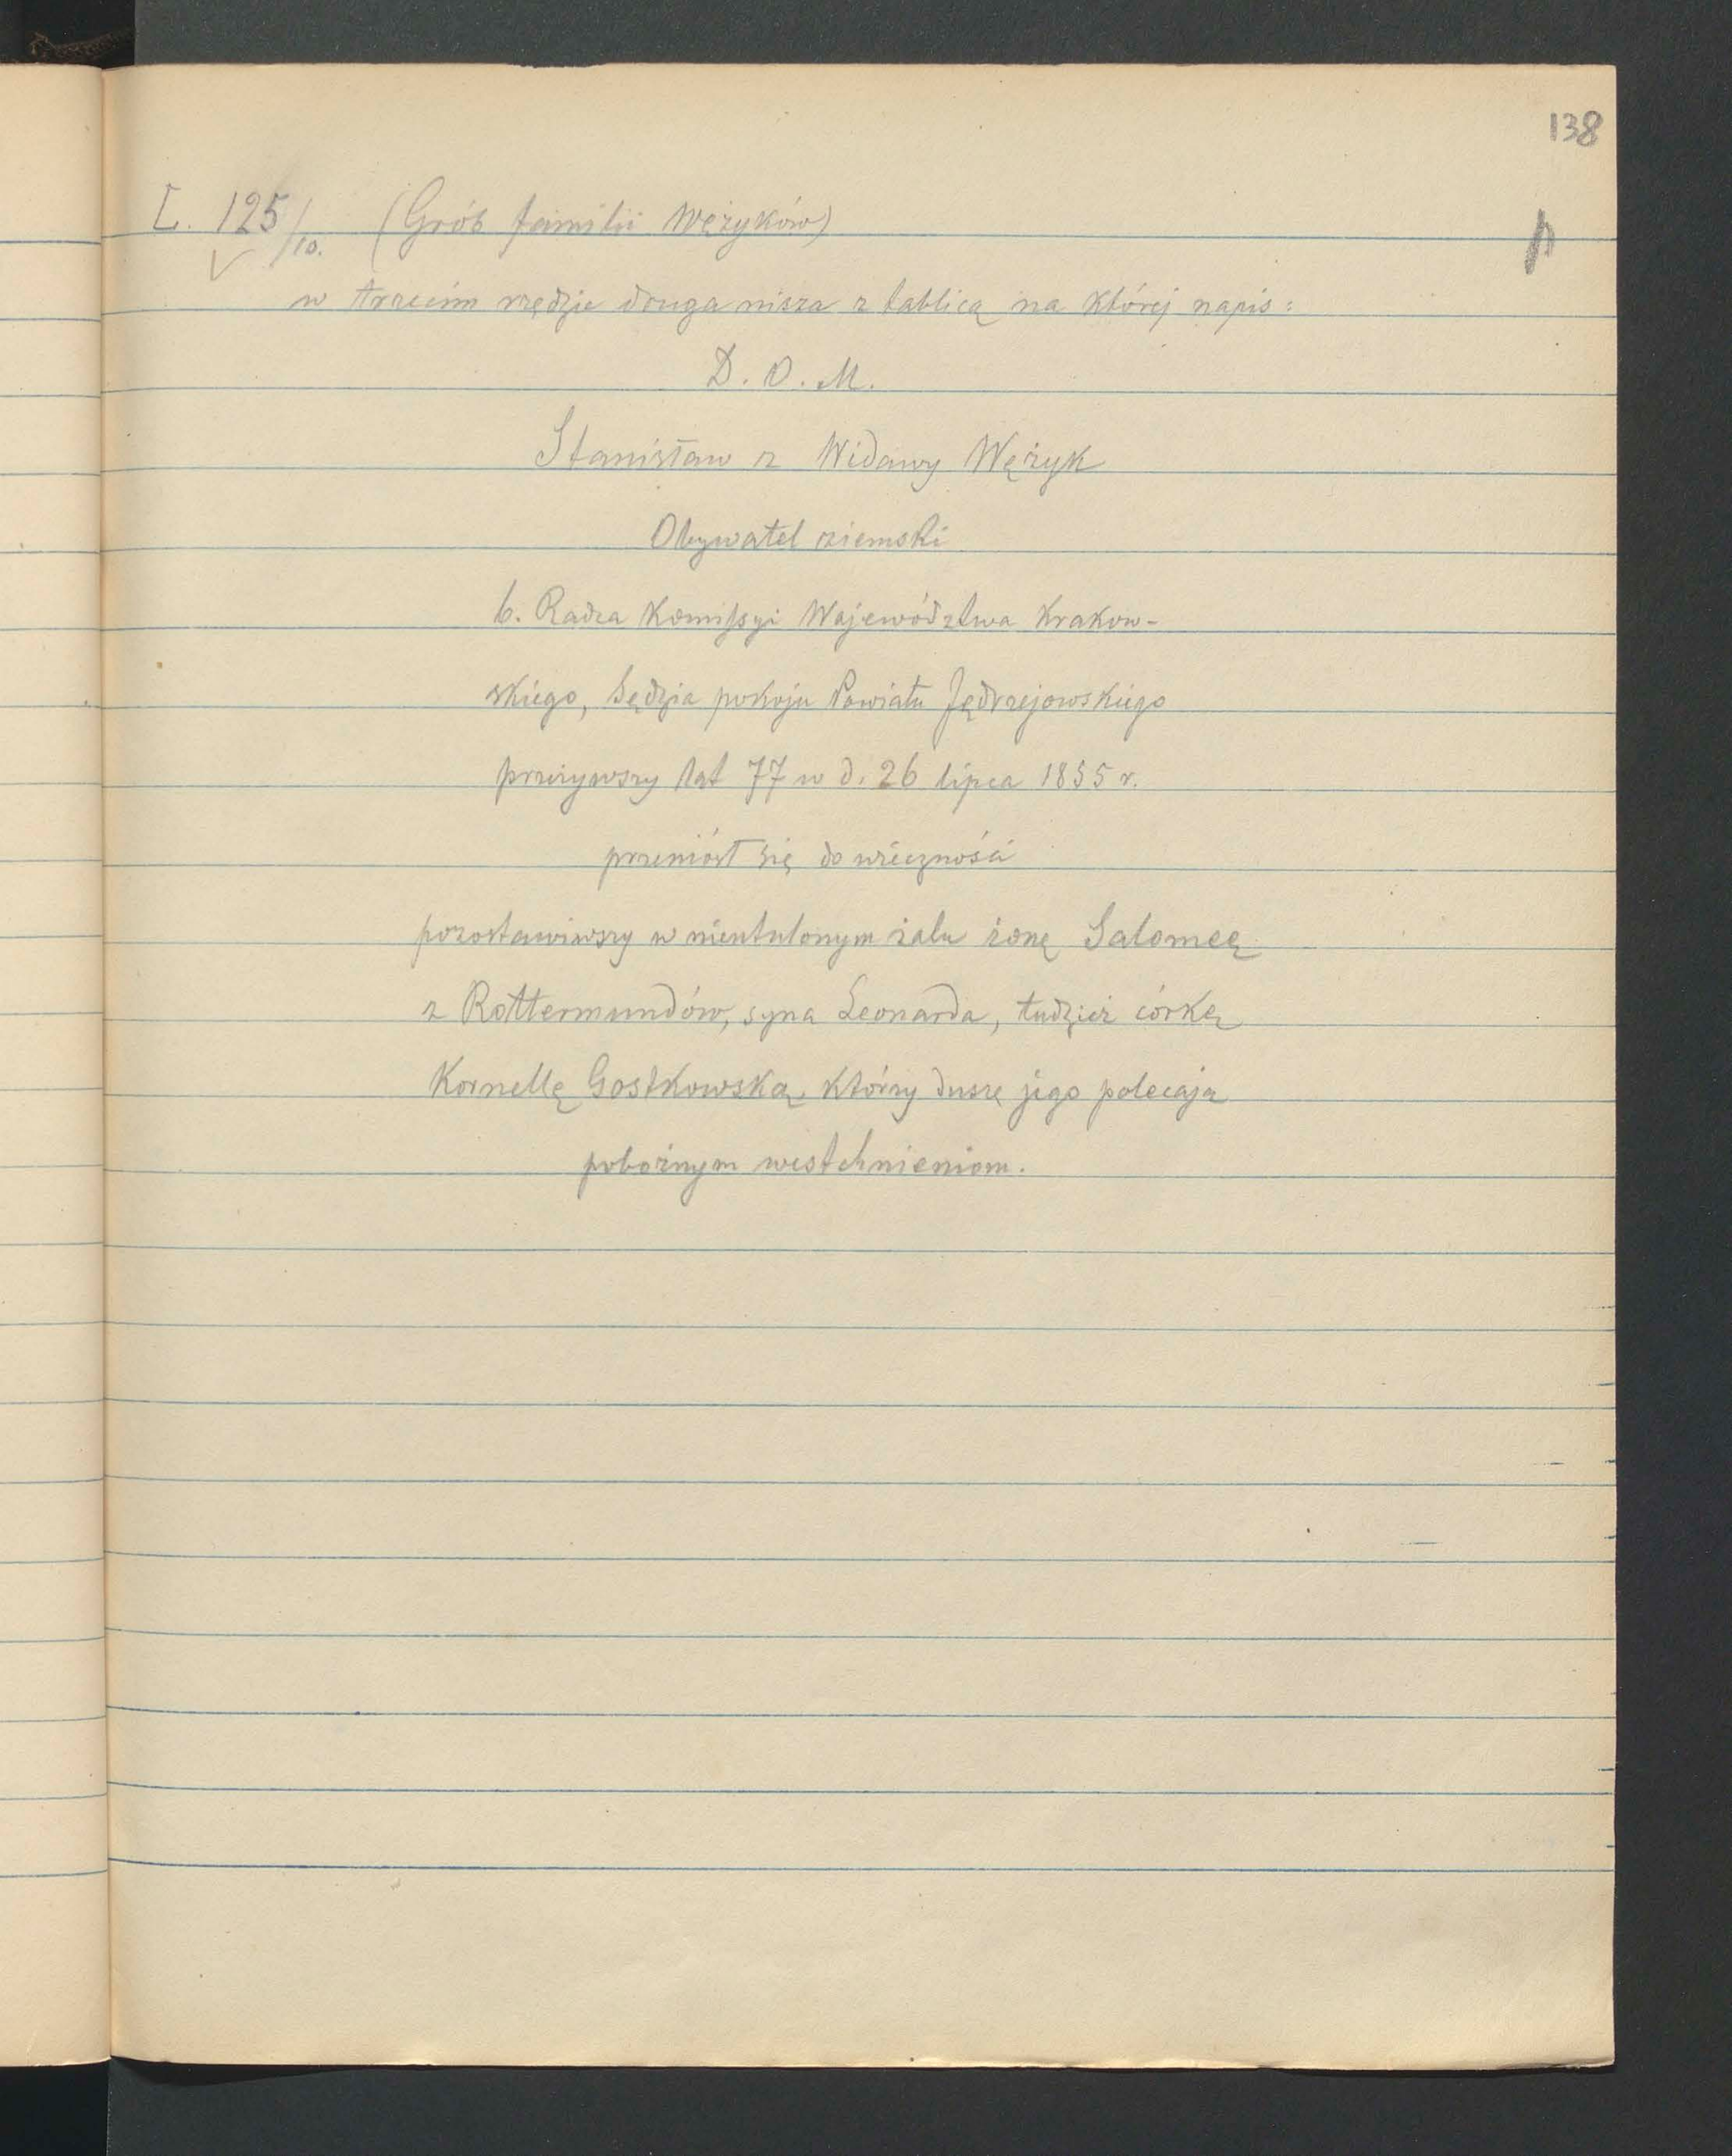 138
L. 125/10. (Grób familii Wężyków)
w trzecim rzędzie druga nisza z tablicą na której napis:
D. O. M.
Stanisław z Widawy Wężyk
Obywatel ziemski
b. Radca Komissyi Województwa Krakow-
skiego, Sędzia pokoju Powiatu Jędrzejowskiego
przeżywszy lat 77 w d. 26 lipca 1855 r.
przeniósł się do wieczności
pozostawiwszy w nieutulonym żalu żonę Salomeę
z Rottermundów, syna Leonarda, tudzież córkę
Kornellę Gostkowską, którzy duszę jego polecają
pobożnym westchnieniom.